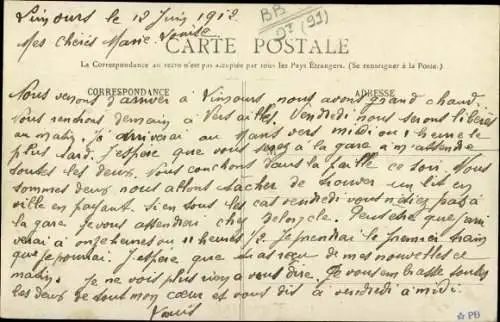 Limours le 12 Juin 1912
BB
Dt (91)
Mes Chères Marie-Louise
CARTE POSTALE
La Correspondance au recto n'est pas acceptée par tous les Pays Étrangers. (Se renseigner à la Poste.)
CORRESPONDANCE
ADRESSE
Nous venons d'arriver à Limours nous avons grand chaud
Nous rentrons demain à Versailles. Vendredi nous serons libérés
au matin. J'arriverai au Mans vers midi ou 1 heure le
plus tard. J'espère que vous serez à la gare à m'attendre
toutes les deux. Nous couchons dans la paille ce soir. Nous
sommes deux nous allons tacher de trouver un lit en
ville en payant. Si en tous les cas vendredi vous n'étiez pas à
la gare je vous attendrai chez Peut être que j'arri
verai à onze heures ou 11 heures 1/2. Je prendrai le premier train
que je pourrai. J'espère que de mes nouvelles ce
matin. Je ne vois plus rien à vous dire. Je vous embrasse toutes
les deux de tout mon cœur et vous dis à vendredi à midi.
Louis
☆ PB